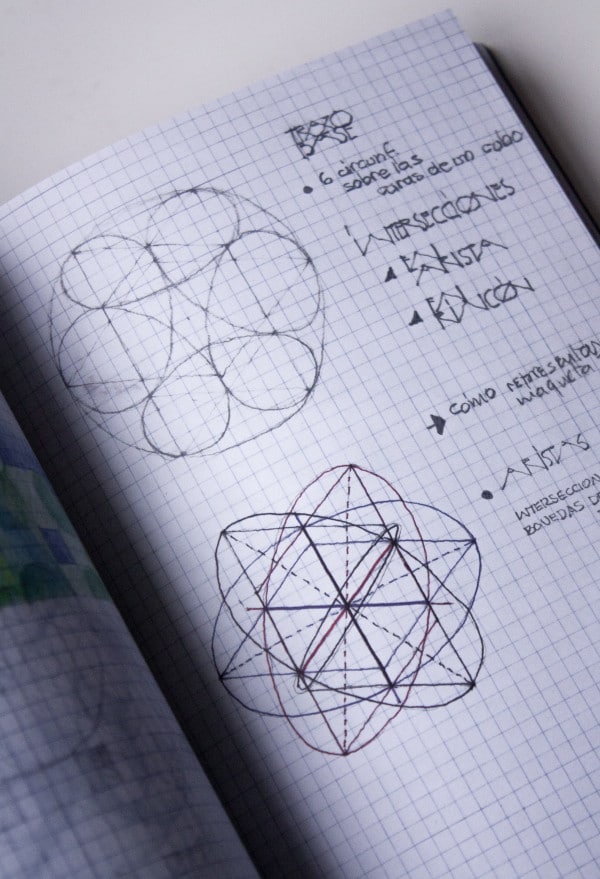 TRAZO
BASE
• 6 circunf
sobre las
caras de un cubo
INTERSECCIONES
ARISTA
RINCÓN
→ como representar
maqueta
• ARISTAS
INTERSECCION
BOVEDAS DE